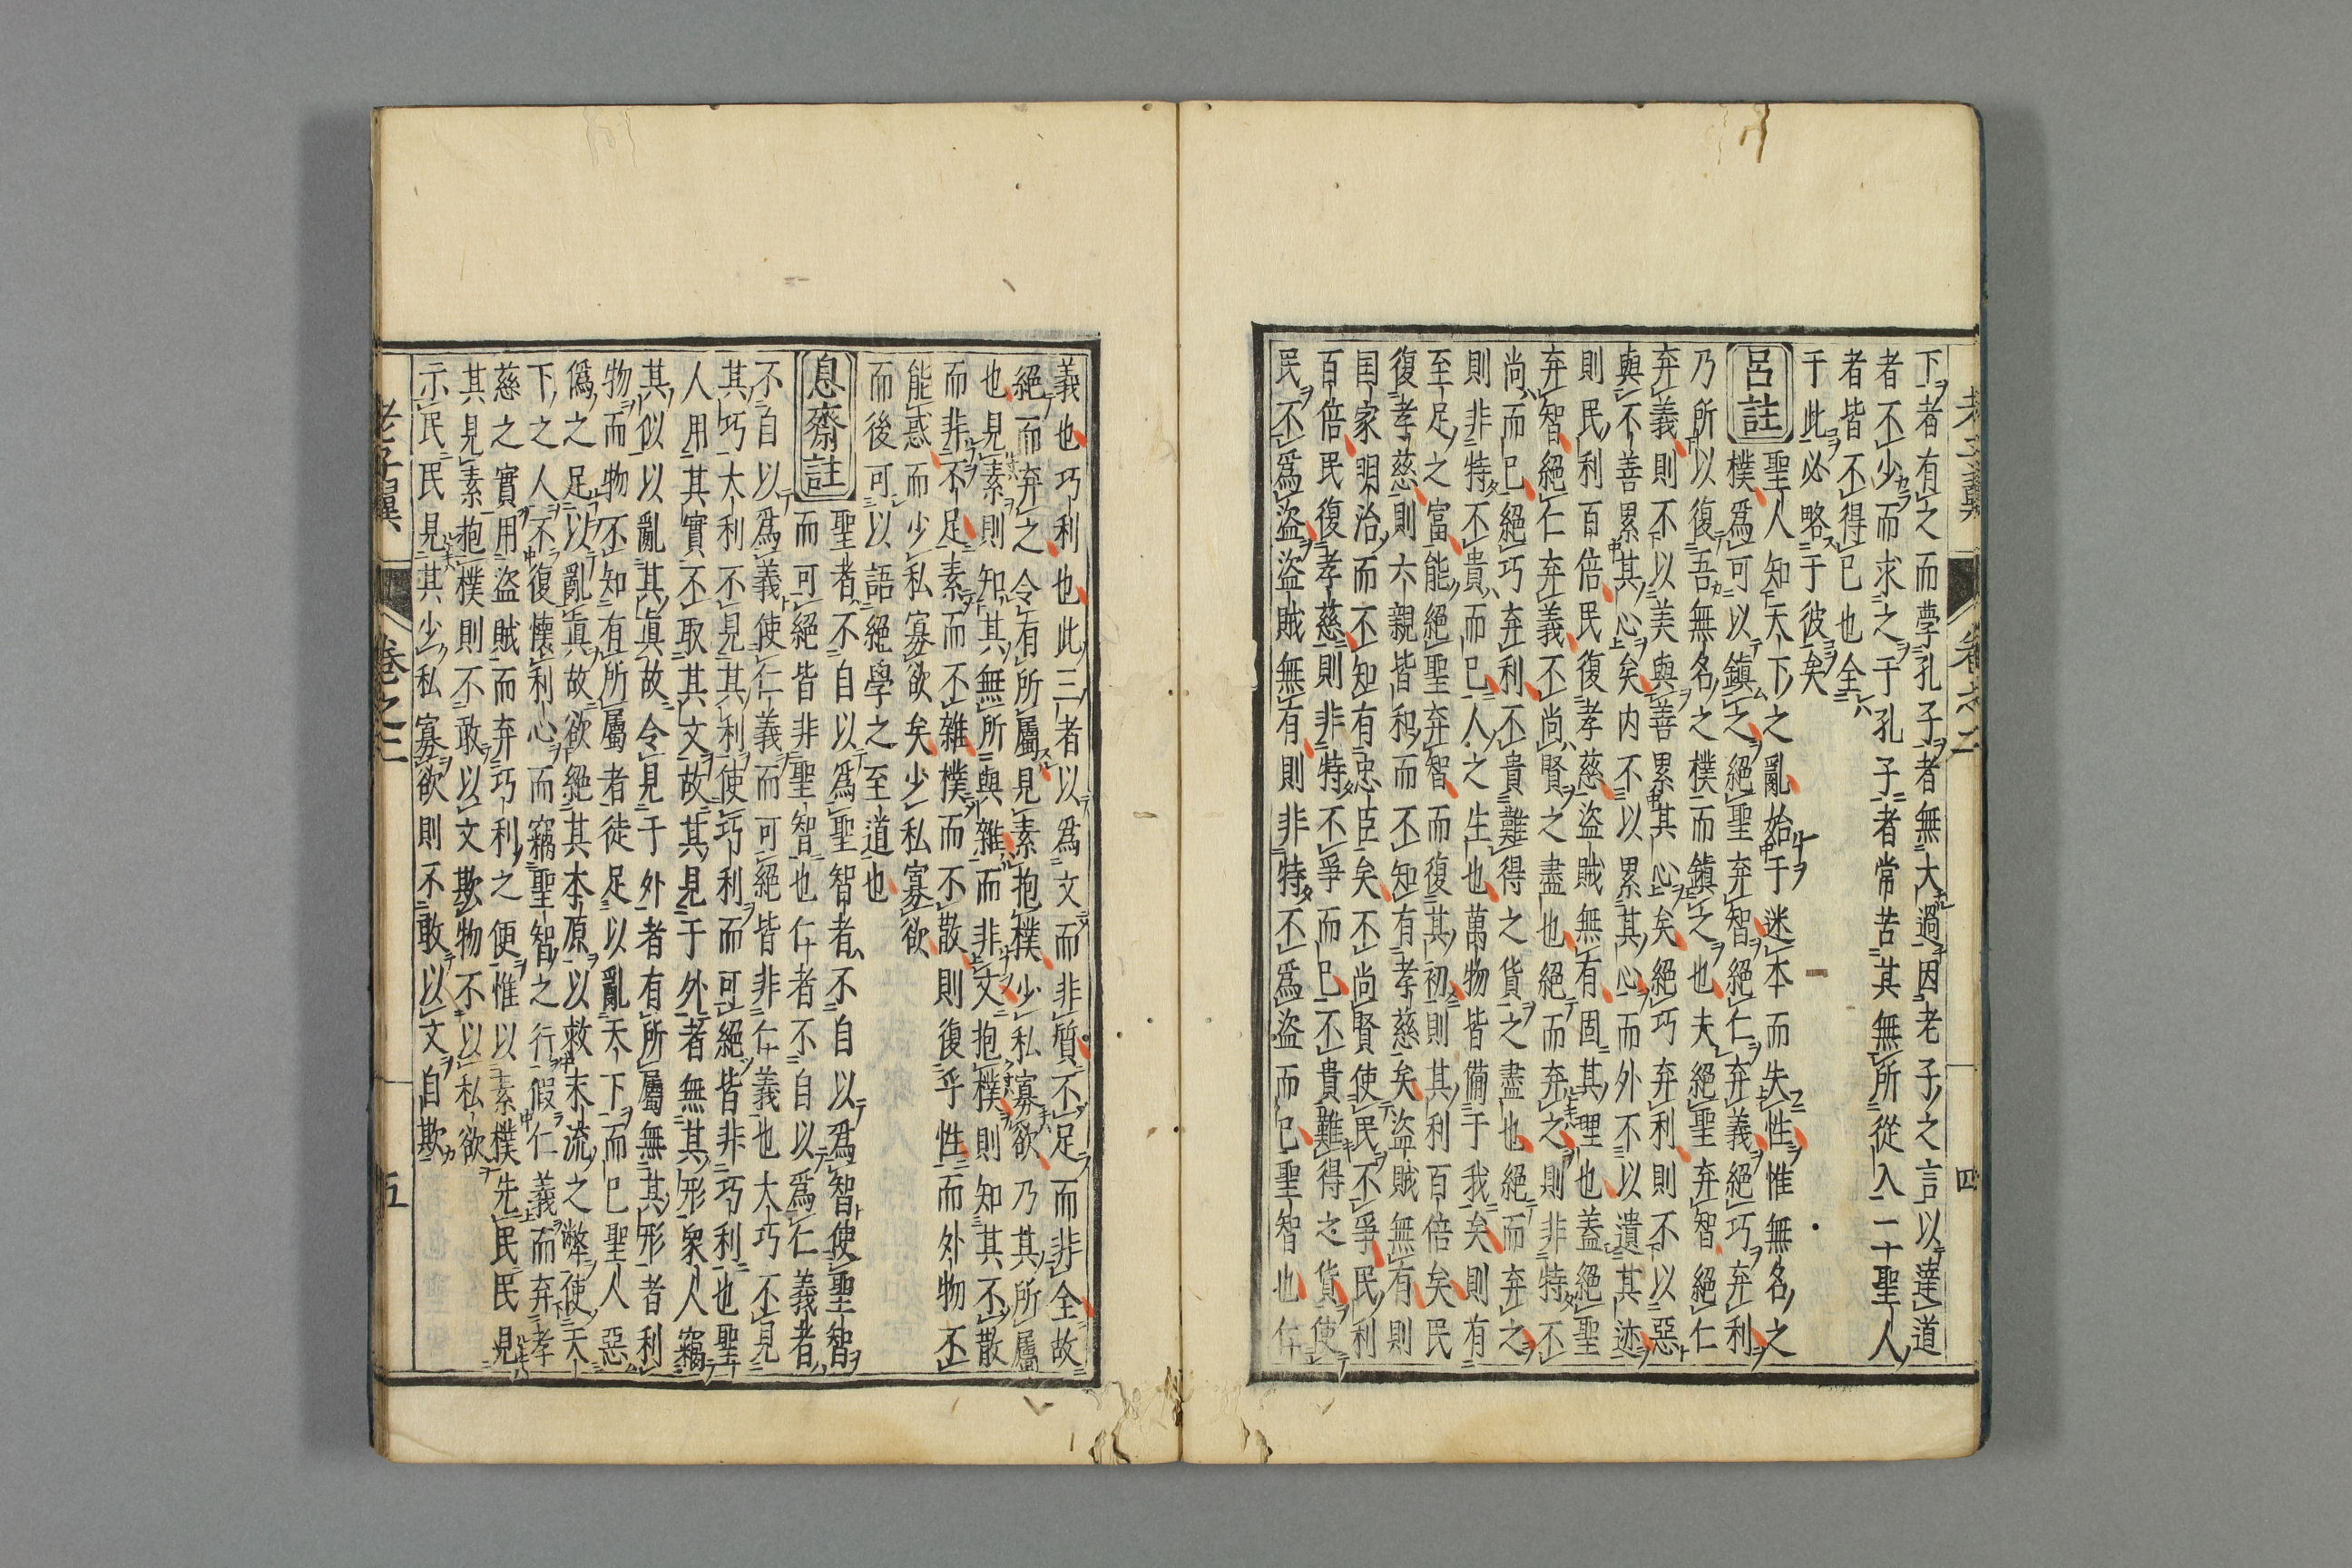 下者有之而學孔子者無大過因老子之言以達道
者不少而求之于孔子者常苦其無所從入二聖人
者皆不得已也全
于此必略于彼矣
呂註
聖人知天下之亂始于迷本而失性惟無名之
樸爲可以鎮之絕聖弃智絕仁弃義絕巧弃利
乃所以復吾無名之樸而鎮之也夫絕聖弃智絕仁
弃義則不以美與善累其心矣絕巧弃利則不以惡
與不善累其心矣内不以累其心而外不以遺其迹
則民利百倍民復孝慈盜賊無有固其理也蓋絕聖
弃智絕仁弃義不尚賢之盡也絕而弃之則非特不
尚而已絕巧弃利不貴難得之貨之盡也絕而弃之
則非特不貴而已人之生也萬物皆備于我矣則有
至足之富能絕聖弃智而復其初則其利百倍矣民
復孝慈則六親皆和而不知有孝慈矣盜賊無有則
国家明治而不知有忠臣矣不尚賢使民不爭民利
百倍民復孝慈則非特不爭而已不貴難得之貨使
民不爲盜盜賊無有則非特不爲盜而已聖智也仁
老子翼 卷之二 四
義也巧利也此三者以爲文而非質不足而非全故
絕而弃之令有所屬見素抱樸少私寡欲乃其所屬
也見素則知其無所與雜而非文抱樸則知其不散
而非不足素而不雜樸而不散則復乎性而外物不
能惑而少私寡欲矣少私寡欲
而後可以語絕學之至道也
息齋註
聖者不自以爲聖智者不自以爲智使聖智
而可絕皆非聖智也仁者不自以爲仁義者
不自以爲義使仁義而可絕皆非仁義也大巧不見
其巧大利不見其利使巧利而可絕皆非巧利也聖
人用其實不取其文故其見于外者無其形衆人竊
其似以亂其眞故令見于外者有所屬無其形者利
物而物不知有所屬者徒足以亂天下而已聖人惡
僞之足以亂眞故欲絕其本原以救末流之弊使天
下之人不復懷利心而竊聖智之行假仁義而弃孝
慈之實用盜賊而弃巧利之便惟以素樸先民民見
其見素抱樸則不敢以文欺物不以私欲
示民民見其少私寡欲則不敢以文自欺
老子翼 卷之二 五